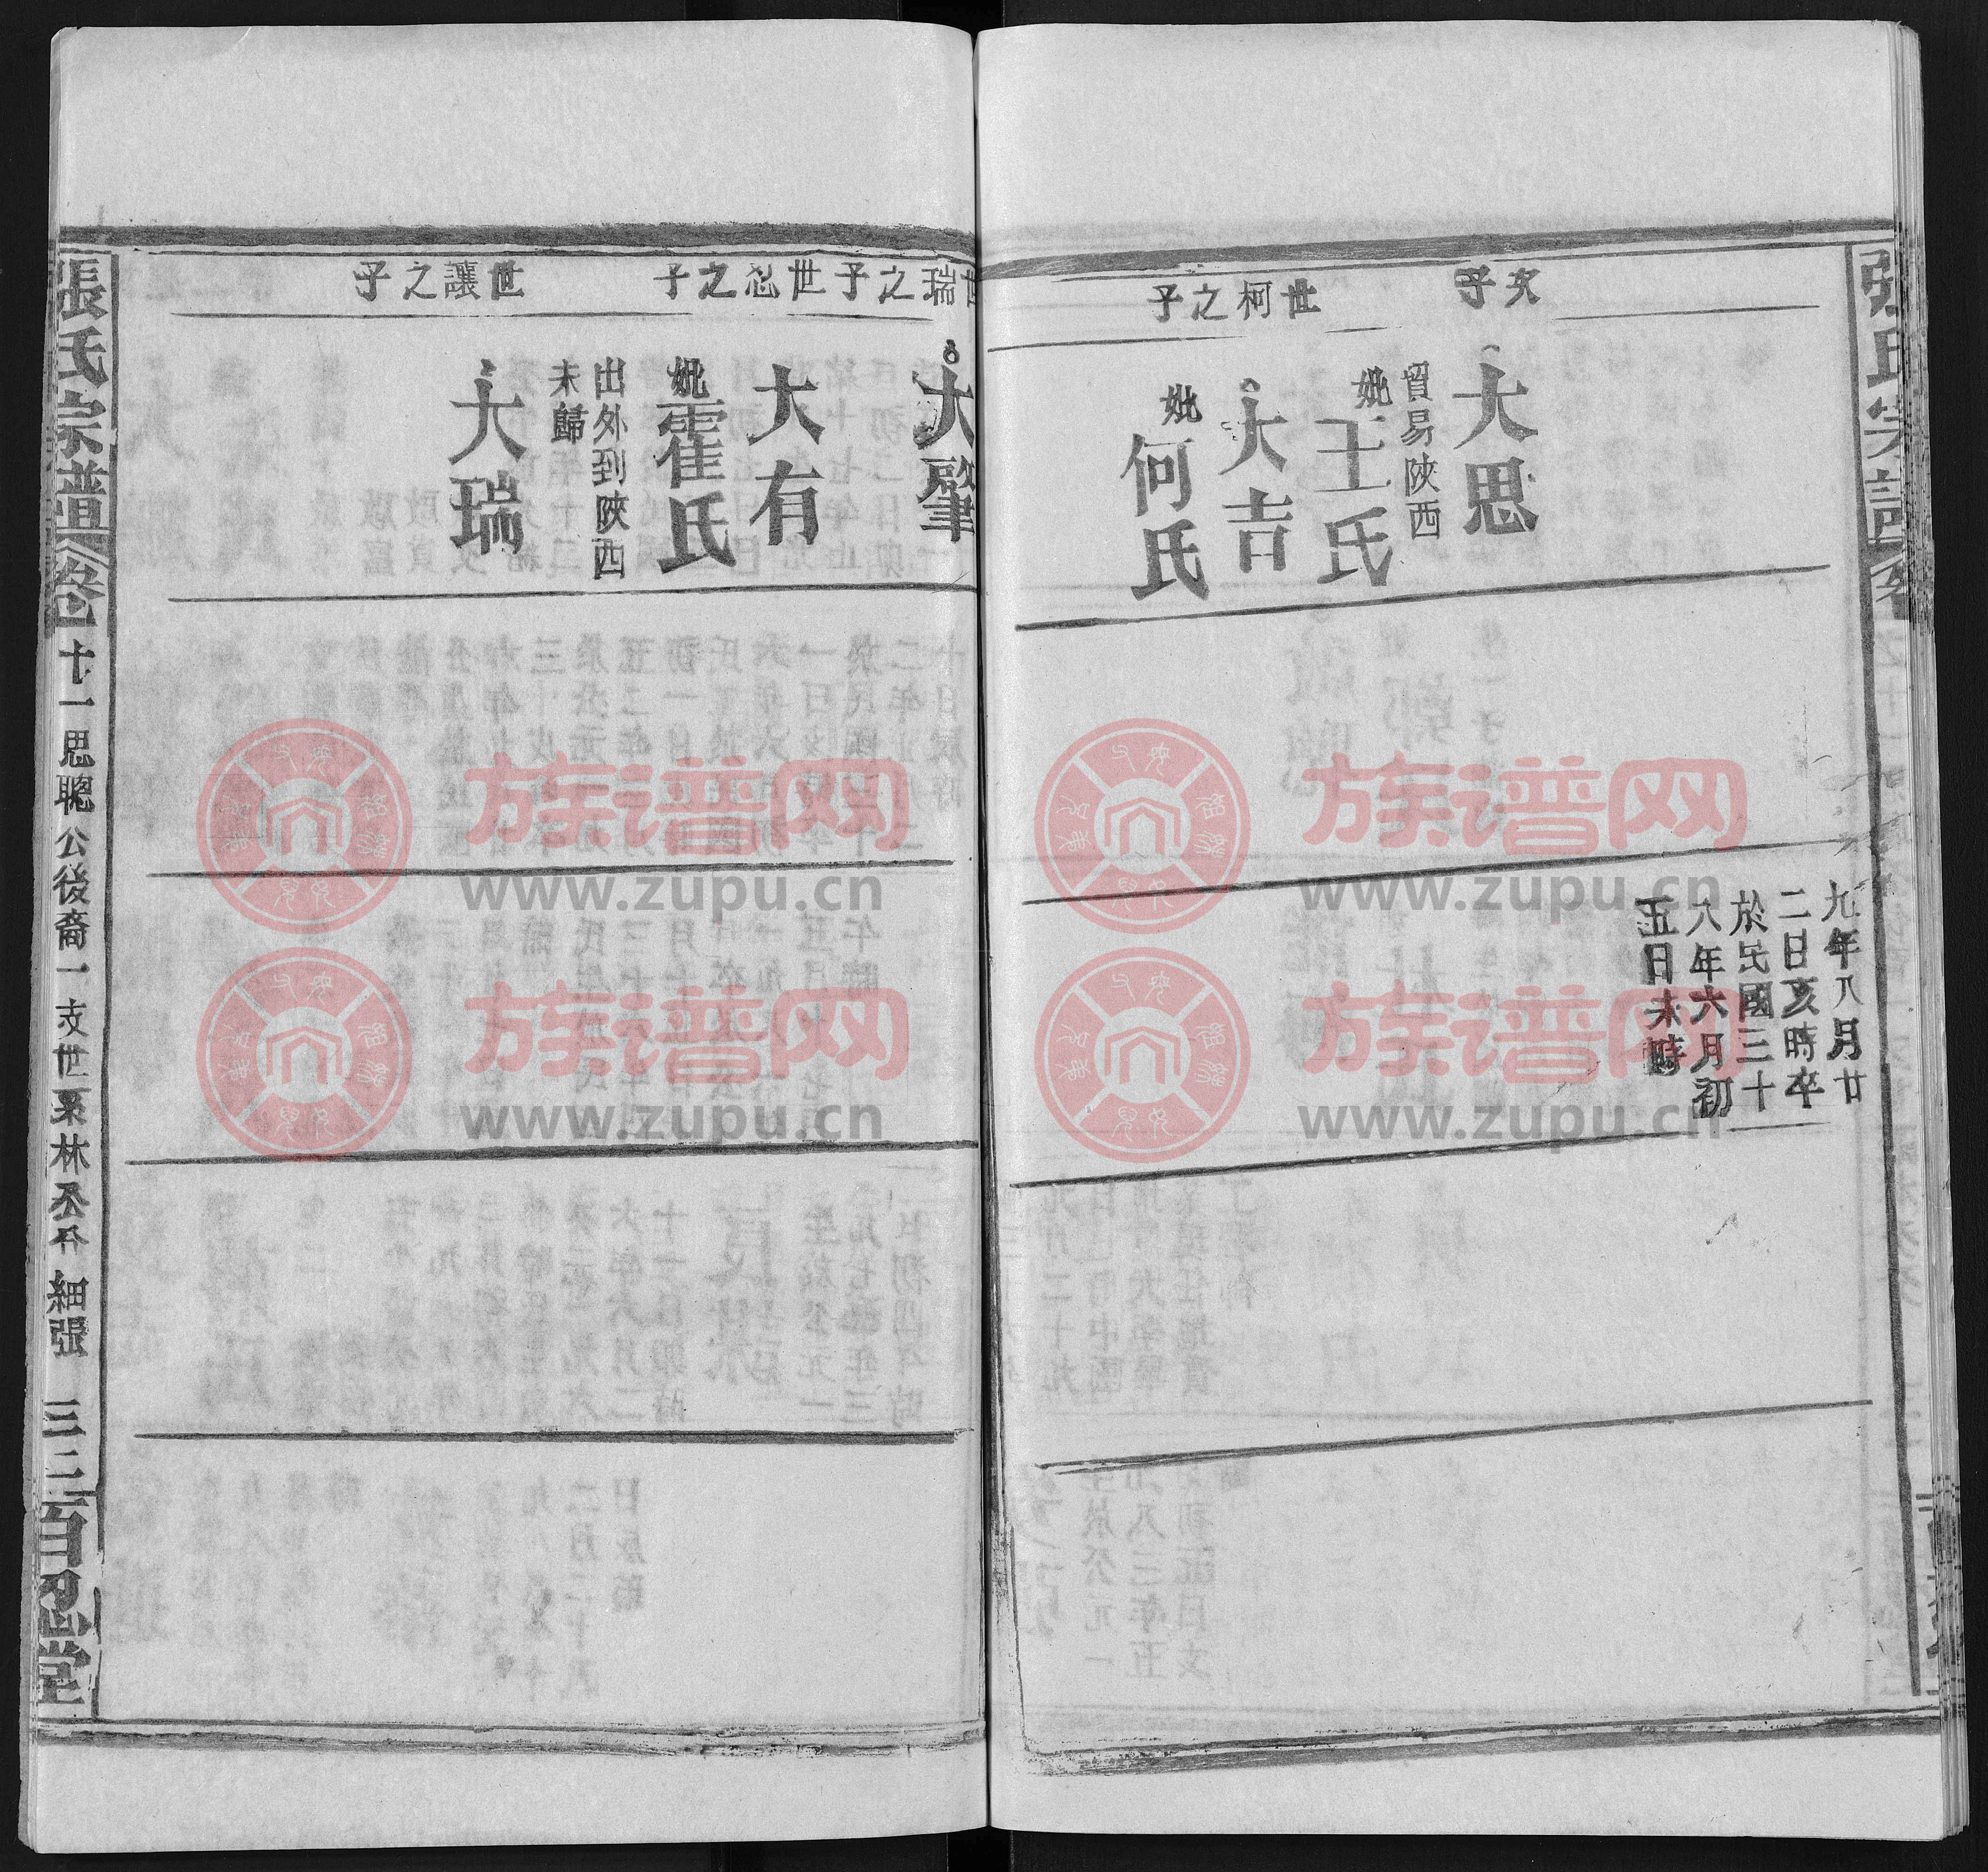 張氏宗譜
次子
大思
貿易陝西
妣王氏
世柯之子
大吉
妣何氏
九年八月廿
二日亥時卒
於民國三十
八年六月初
五日未時
世瑞之子
大啟肇
世忍之子
大有
妣霍氏
出外到陝西
未歸
世讓之子
大瑞
張氏宗譜
卷十一思聰公後裔一支世系林丞 細張
三二百忍堂
族谱网
www.zupu.cn
族谱网
www.zupu.cn
族谱网
www.zupu.cn
族谱网
www.zupu.cn